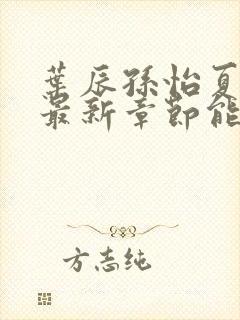 葉辰孫怡夏
最新章節能
方志纯